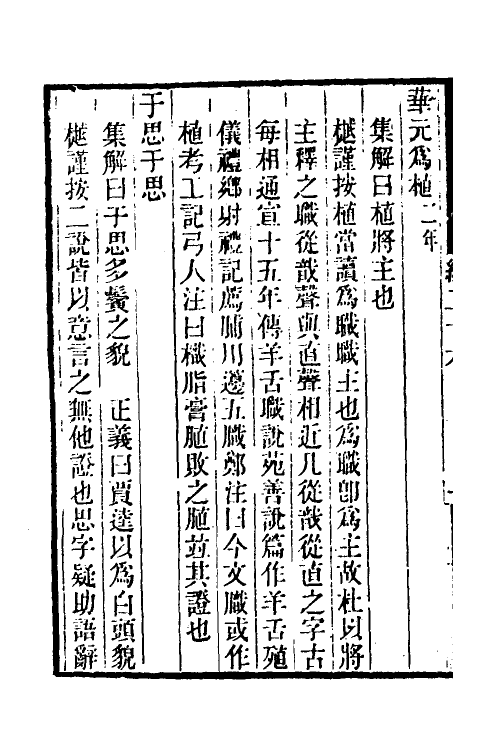 華元爲植二年
集解曰植將主也
樾謹按植當讀爲職職主也爲職卽爲主故杜以將
主釋之職從戠聲與直聲相近凡從戠從直之字古
每相通宣十五年傳羊舌職說苑善說篇作羊舌殖
儀禮鄉射禮記薦脯用籩五職鄭注曰今文職或作
植考工記弓人注曰樴脂膏䐈敗之䐈竝其證也
于思于思
集解曰于思多鬢之貌　正義曰賈逵以爲白頭貌
樾謹按二說皆以意言之無他證也思字疑助語辭